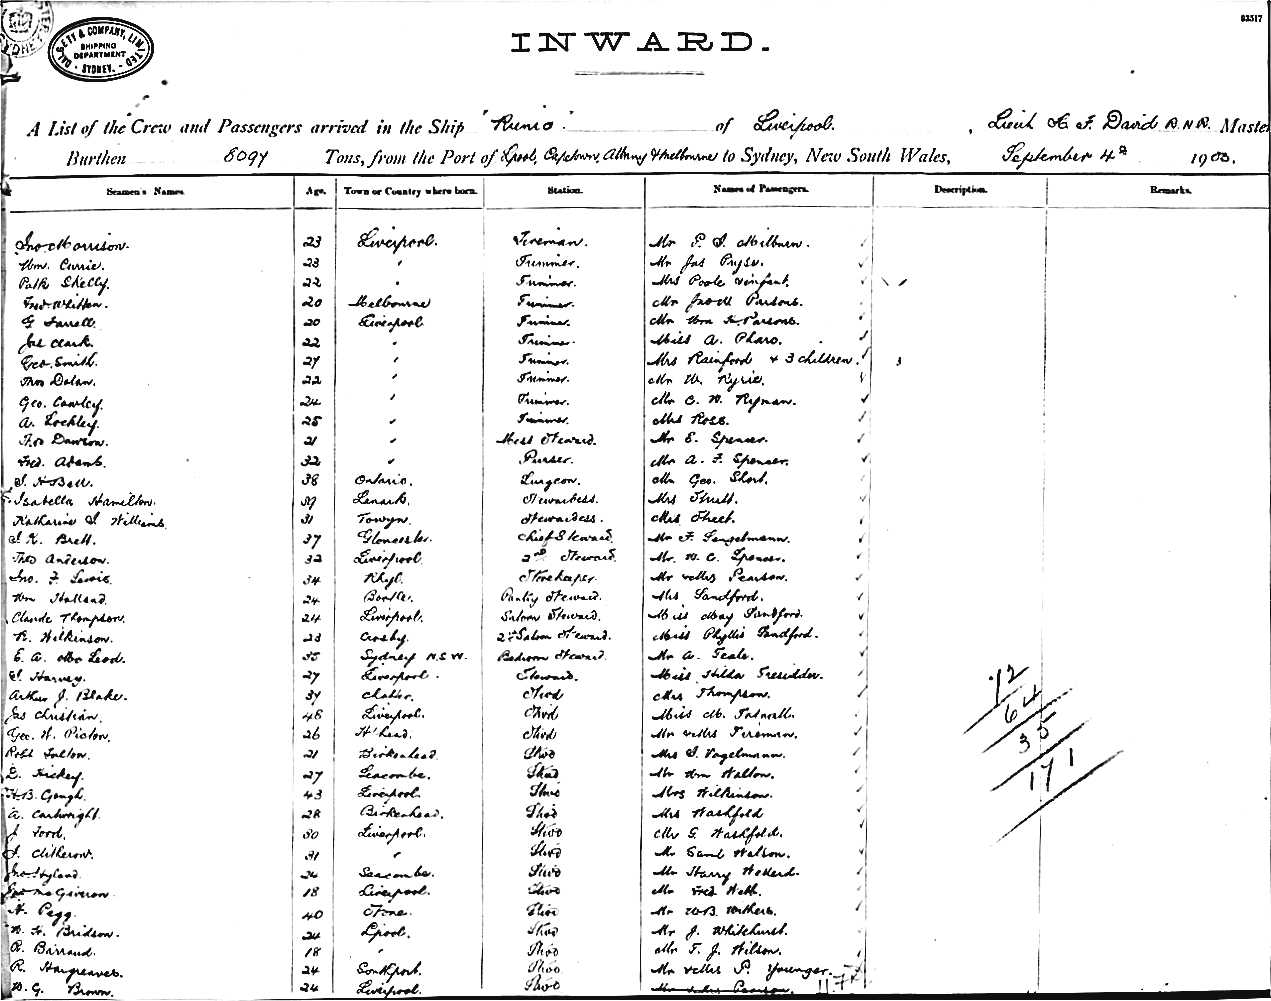 83517
DALGETY & COMPANY, LIMITED
SHIPPING
DEPARTMENT
SYDNEY.
INWARD.
A List of the Crew and Passengers arrived in the Ship "Runic" of Liverpool. , Lieut H. F. David R.N.R. Master
Burthen 8094 Tons, from the Port of Lpool, Capetown, Albany & Melbourne to Sydney, New South Wales, September 4th 1903.
Seamen's Names. Age. Town or Country where born. Station. Names of Passengers. Description. Remarks.
Jno Morrison. 23 Liverpool. Fireman. Mr P. S. Milburn.
Wm. Currie. 23 " Trimmer. Mr Jas Pryse.
Patk Skelly. 22 " Trimmer. Mrs Poole & infant.
Fred Whitten. 20 Melbourne Trimmer. Mr Parsons.
G Farrell. 20 Liverpool Trimmer. Mr Wm Parsons.
Joe Clark. 22 " Trimmer. Miss A. Pharo.
Geo. Smith. 27 " Trimmer. Mrs Rainford & 3 children. 3
Thos Dolan. 22 " Trimmer. Mr W. Ryrie.
Geo. Cawley. 24 " Trimmer. Mr C. W. Ryman.
A. Lockley. 25 " Trimmer. Mrs Ross.
Thos Dawson. 21 " Mess Steward. Mr E. Spencer.
Fred. Adams. 32 " Purser. Mr A. F. Spencer.
H Bell. 38 Ontario. Surgeon. Mr Geo. Short.
Isabella Hamilton. 39 Lanark. Stewardess. Mrs Strutt.
Katharine Williams. 31 Towyn. Stewardess. Mrs Street.
K. Brett. 37 Gloucester. Chief Steward. Mr F.
Thos Anderson. 32 Liverpool. 2nd Steward. Mr. W. C. Spencer.
Jno. F. Lewis. 34 Rhyl. Storekeeper. Mr & Mrs Pearson.
Wm Holland. 24 Bootle. Pantry Steward. Mrs Sandford.
Claude Thompson. 24 Liverpool. Saloon Steward. Miss May Sandford.
R. Wilkinson. 23 Crosby. 2nd Saloon Steward. Miss Phyllis Sandford.
E. A. McLeod. 35 Sydney N.S.W. Bedroom Steward. Mr A. Teale.
Harvey. 27 Liverpool. Steward. Miss Hilda Tresidder.
Arthur J. Blake. 37 Stwd Mrs Thompson. 72
Jas Christian. 48 Liverpool. Stwd Miss M. 64
Geo. H. Picton. 26 B'head. Stwd Mr & Mrs Fireman. 35
Robt Fulton. 21 Birkenhead. Stwd Mrs Vogelmann.
Hickey. 27 Seacombe. Stwd Mr Wm Walton. 171
H.B. Gough. 43 Liverpool. Stwd Mrs Wilkinson.
A. Cartwright. 28 Birkenhead. Stwd Mrs Washfold
J Ford. 30 Liverpool. Stwd Mr G. Washfold.
J. Clitherow. 31 " Stwd Mr Saml Watson.
Jno Hyland. 24 Seacombe. Stwd Mr Harry
McGiveron. 18 Liverpool. Stwd Mr Fred Webb.
H. Pegg. 40 Stone. Stwd Mr W.B. Withers.
W. H. Bridson. 24 Lpool. Stwd Mr J. Whitehurst.
R. Barraud. 18 " Stwd Mr T. J. Wilson.
R. Hargreaves. 24 Southport. Stwd Mr & Mrs P. Younger.
W. G. Brown. 24 Liverpool. Stwd Mr & Mrs Pearson.